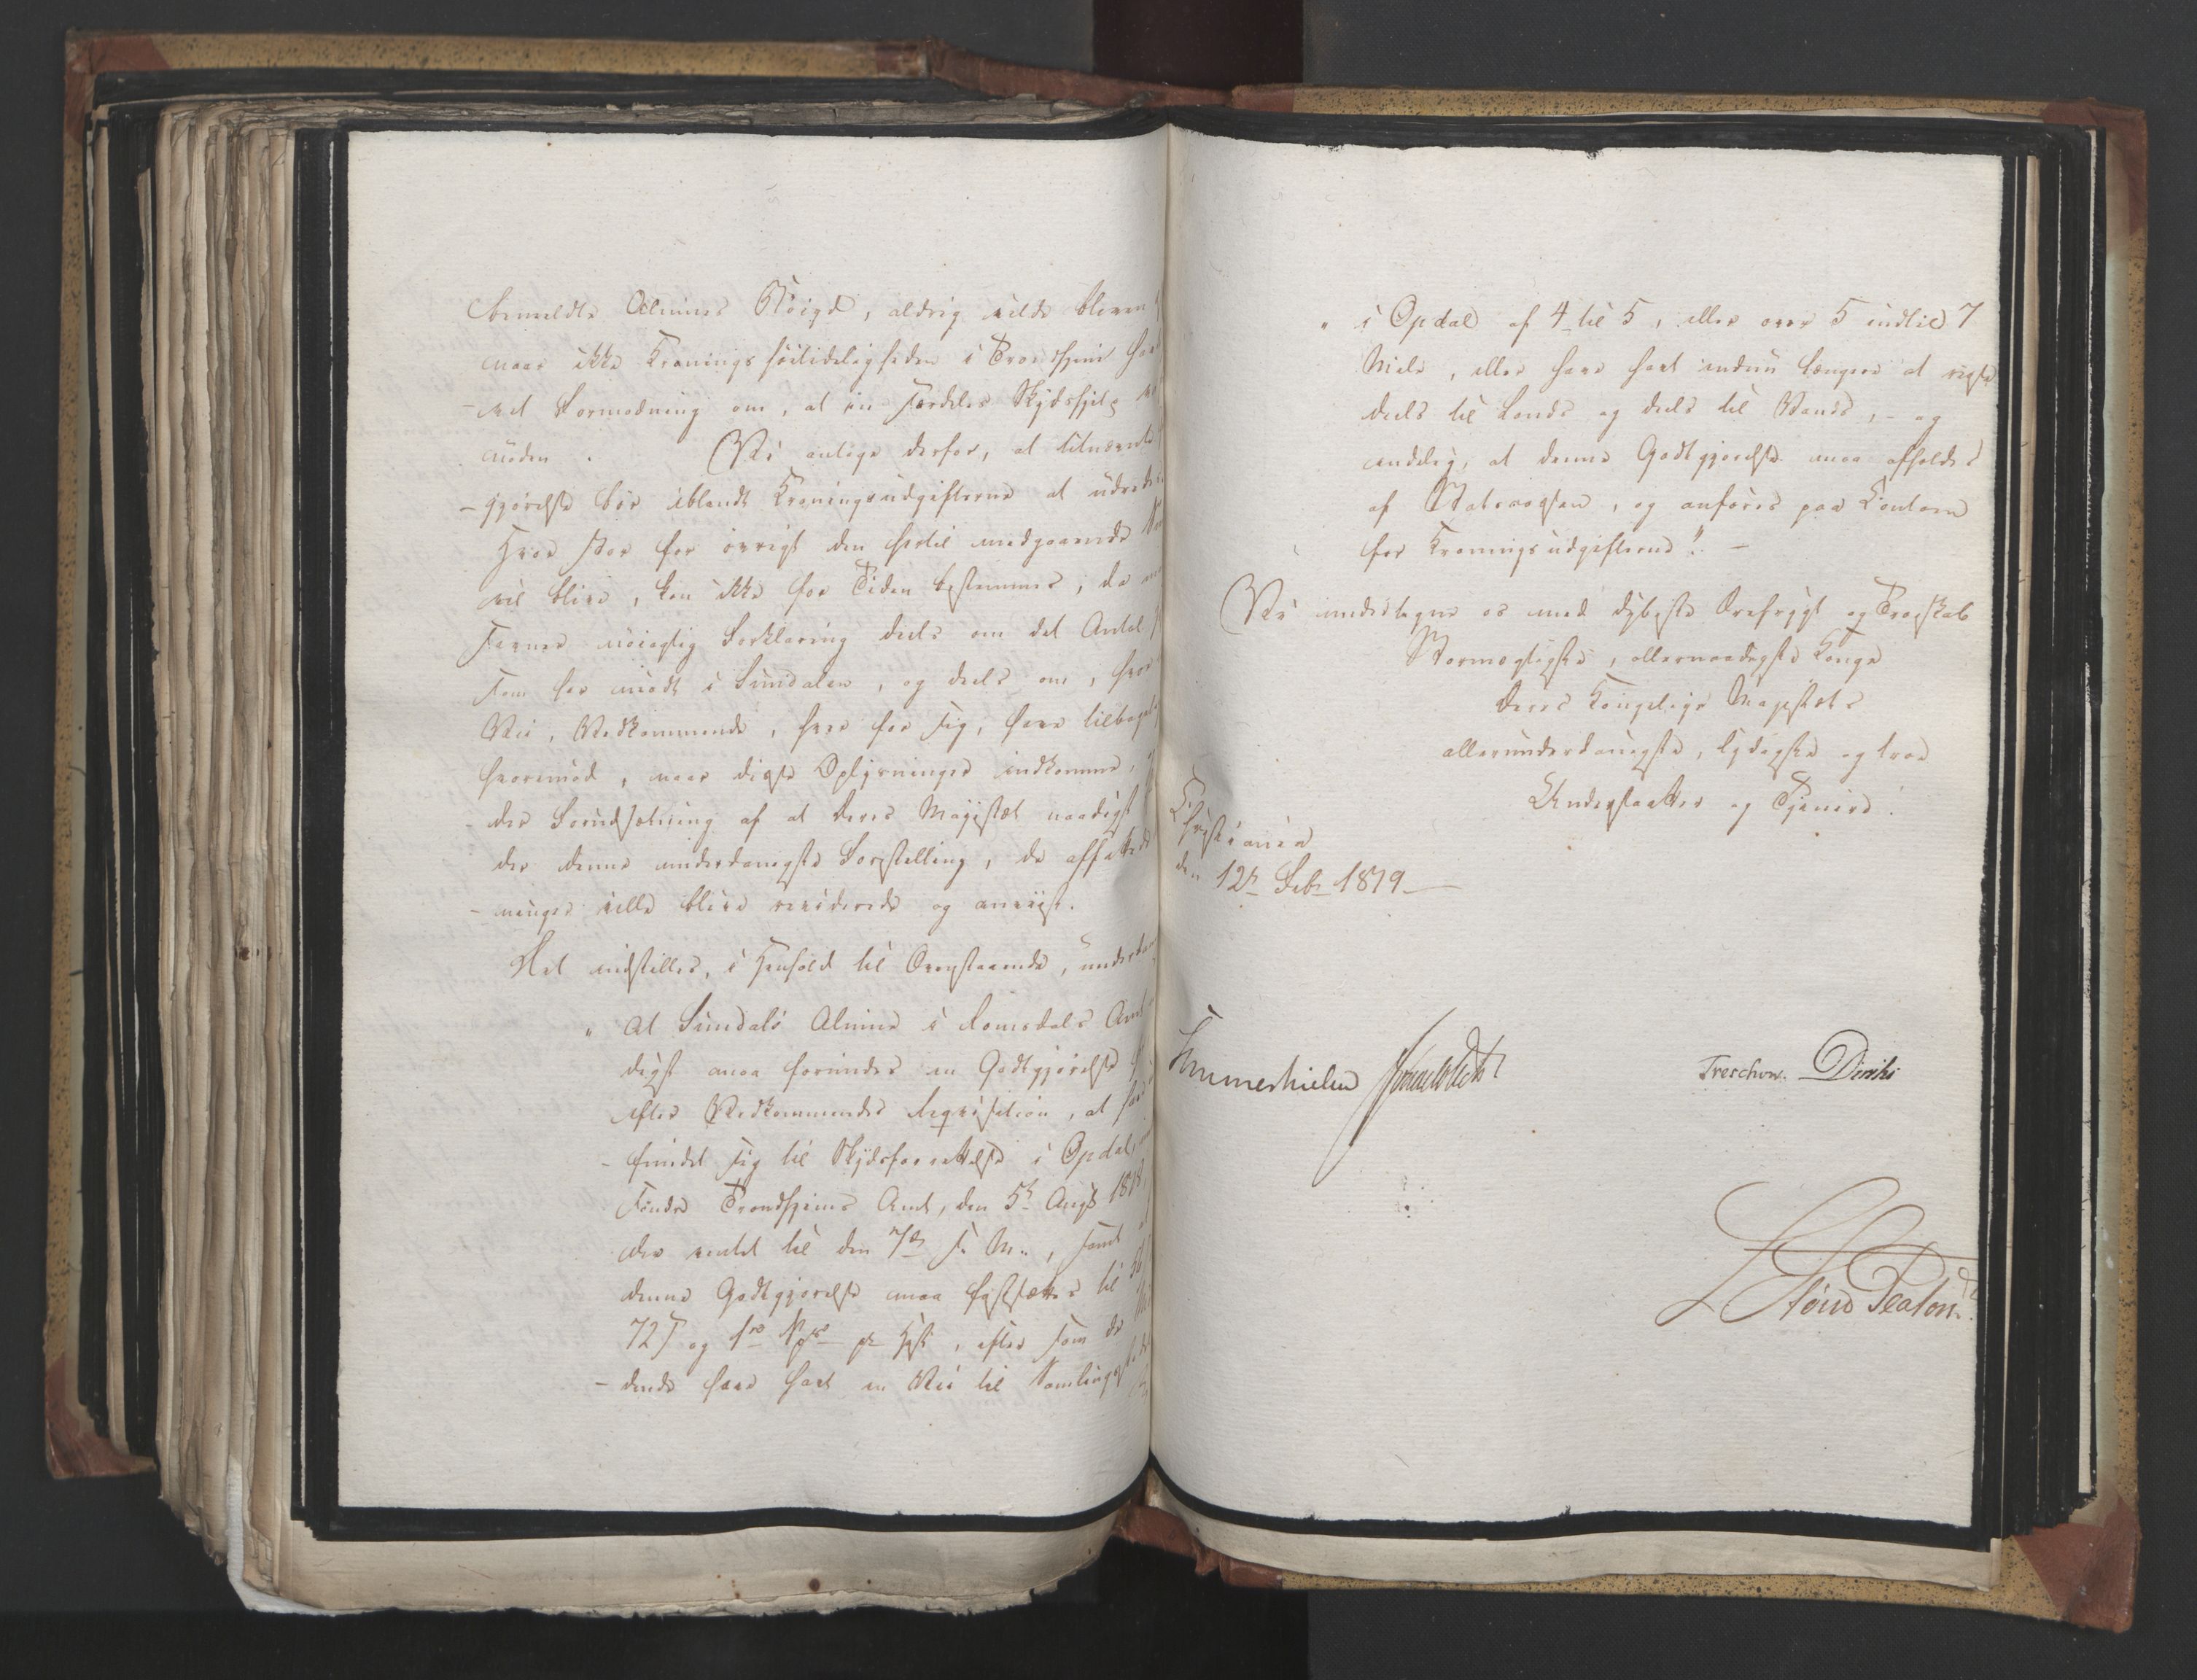 bemeldte Almues Vægt, aldrig vilde bleven
naar ikke Kronings høitideligheden i Trondhjem hav
-vet Formodning om, at en særdeles Skydshjelp
nøden. Vi antage derfor, at
-gjørelse bør iblandt Kroningsudgifterne at udrede
Hvor stor for øvrigt den hertil medgaaende
vil blive, kan ikke for Tiden bestemmes, da
savner nøiagtig Forklaring deels om det Antal
som har mødt i Sundalen, og deels om, hvor
Vei, Vedkommende, hver for sig, have tilbagelagt
hvorimod, naar disse Oplysninger indkomme,
der Forudsætning af at Deres Majestæt naadigst
der denne underdanigste Forestilling, de affattede
-ninger ville blive reviderede og anviist.
Det indstilles, i Henhold til Ovenstaaende, underda
" At Sundals Almue i Romsdals Amt
digst maa forundes en Godtgjørelse
efter Vedkommendes Reqvisition, at have
-fundet sig til Skydsforrettelse i Opdal,
søndre Trondhjems Amt, den 5te Augt 1818
der ventet til den 7de s. M., samt
denne Godtgjørelse maa fastsættes til
72 s og 1 pr Hest, efter som de
-dende have havt en Vei til Samlings
" i Opdal af 4 til 5, eller over 5 indtil 7
Miele, eller have havt endnu længere at reise
deels til Lands og deels til Vands, - og
endelig, at denne Godtgjørelse maa afholdes
af Statscassen, og anføres paa Contoen
for Kroningsudgifterne". -
Vi undertegne os med dybeste Ærefrygt og Troeskab
Stormægtigste, allernaadigste Konge
Deres Kongelige Majestæts
allerunderdanigste, lydigste og troe
Undersaatter og Tjenere.
Christiania
den 12te Febr 1819
Sommerhielm
Treschow. Diriks